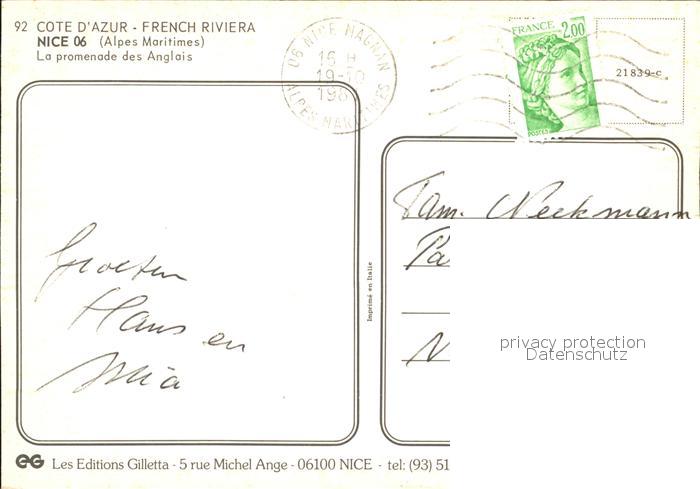 92 COTE D'AZUR - FRENCH RIVIERA
NICE 06 (Alpes Maritimes)
La promenade des Anglais
06 NICE MAGNAN
16 H
19-10
198
ALPES MARITIMES
FRANCE
2,00
POSTES
21839-c
Groeten
Hans en
Mia
Imprimé en Italie
Fam. Neckmann
Pa
N
privacy protection
Datenschutz
EG Les Editions Gilletta - 5 rue Michel Ange - 06100 NICE - tel: (93) 51